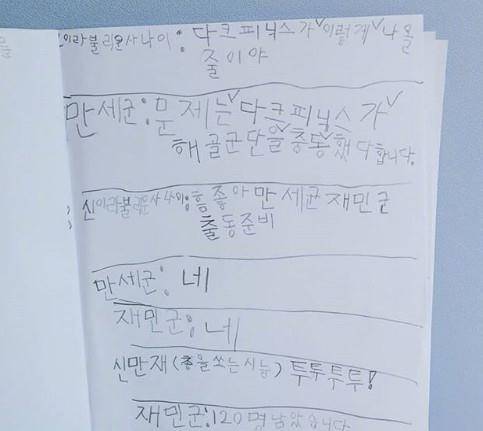 신이라불리운사나이: 다크피닉스가 이렇게 나올
줄이야
만세군: 문제는 다크피닉스가
해골군단을 충동했다합니다.
신이라불리운사나이: 흠좋아 만세군재민군
출동준비
만세군: 네
재민군: 네
신만재(총을쏘는시늉) 투투투투!
재민군: 120명남았습니다